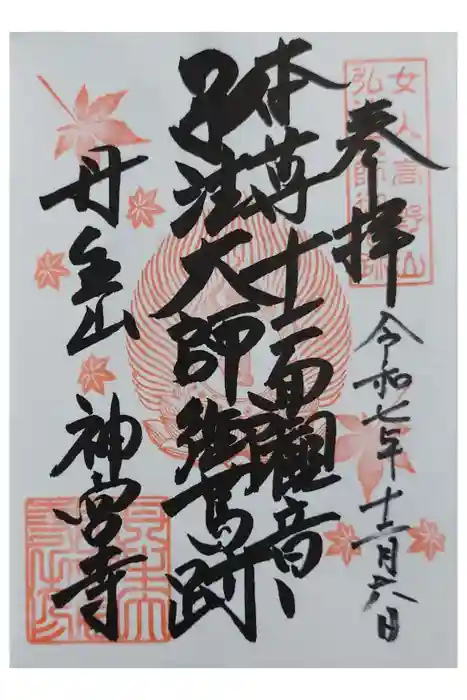 奉拝
令和七年十二月六日
女人高野山
本尊十一面観音
弘法大師御舊跡
丹生山
神宮寺